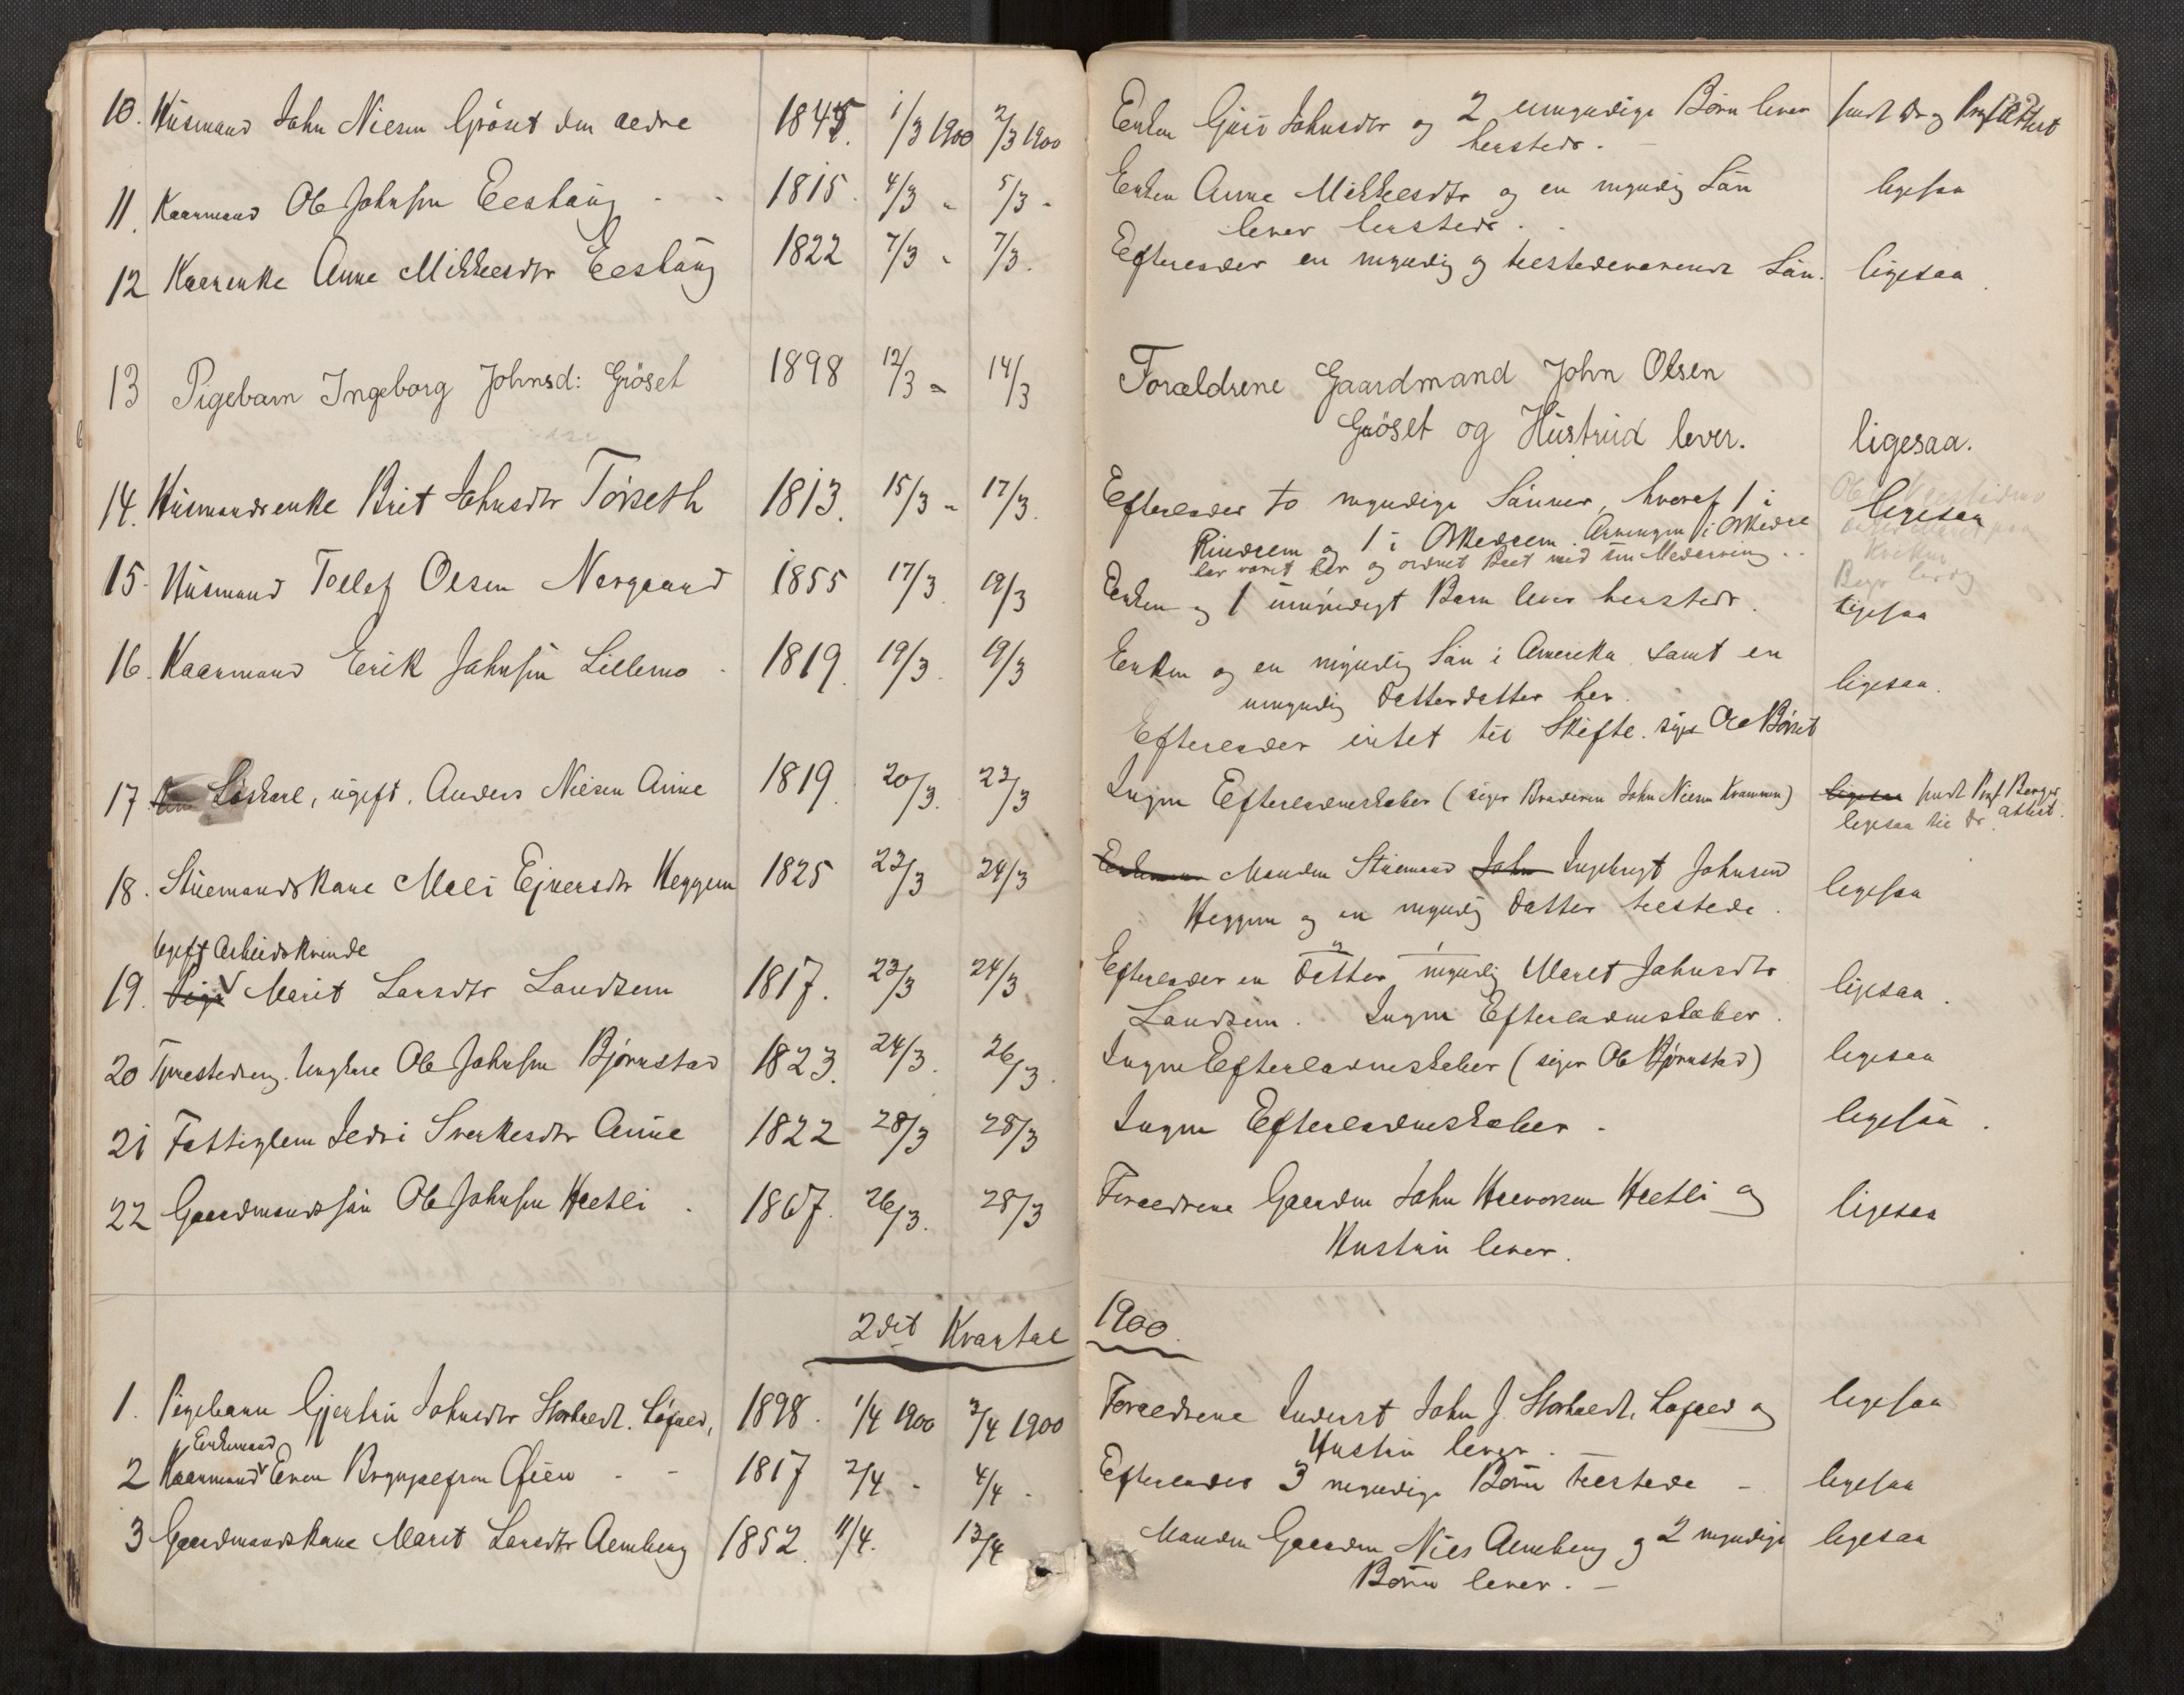 10. Husmand John Nilsen Gröset den ældre 1845. 1/3 1900 2/3 1900 Enken Guri Johnsdtr og 2 umyndige Børn lever
hersteds. –
11. Kaarmand Ole Johnsen 1815. 4/3 " 5/3 " Enken Anne Mikkelsdtr og en myndig Sön ligesaa
lever hersteds.
12 Kaarenke Anne Mikkelsdtr 1822 7/3 " 7/3. Efterlader en myndig og tilstedeværende Sön. ligesaa.
13 Pigebarn Ingeborg Johnsd: Gröset 1898 12/3 " 14/3 Forældrene Gaardmand John Olsen
Gröset og Hustrud lever. ligesaa.
14. Husmandsenke Brit Johnsdtr Törseth 1813. 15/3 " 17/3. Efterlader to myndige Sönner, hvoraf 1 i ligesaa
Rindalen og 1 i Orkedalen. Arvingen i Orkedal
har været her og ordnet Boet med sin Medarving.
15. Husmand Tollef Olsen Norgaard 1855 17/3. 19/3 Enken og 1 umyndigt Barn lever hersteds. ligesaa
16. Kaarmand Erik Johnsen Lillemo 1819. 19/3. 19/3 Enken og en myndig Sön i Amerika samt en ligesaa.
umyndig Datterdatter her.
Efterlader intet til Skifte. siger Ole Börset
17 Löskarl, ugift, Anders Nilsen Aune 1819. 20/3. 23/3 Ingen Efterladenskaber (siger Broderen John Nilsen) ligesaa
ligesaa til Dr. attest.
18. Stuemandskone Mali Ejnersdtr Heggem 1825 22/3 24/3 Manden Stuemand John Ingebrigt Johnsen ligesaa
Heggem og en myndig Datter tilstede.
Ugift Arbeidskvinde
19. Pige Marit Larsdtr Landsem 1817. 23/3 24/3 Efterlader en Datter myndig Maret Johnsdtr ligesaa.
Landsem. Ingen Efterladenskaber.
20 Ungkarl Ole Johnsen Bjørnstad 1823. 24/3. 26/3. Ingen Efterladenskaber (siger Ole Bjørnstad) ligesaa
21 Fattiglem Sverkesdtr Aune 1822 28/3 28/3 Ingen Efterladenskaber. ligesaa.
22 Gaardmandssön Ole Johnsen Hletli 1867. 26/3. 28/3 Forældrene Gaardm. John Halvorsen og ligesaa
Hustru lever.
2det Kvartal 1900.
1. Pigebarn Gjertru Johnsdtr 1898. 1/4 1900 3/4 1900 Forældrene Inderst John J. og ligesaa
Hustru lever. –
Enkemand
2 Kaarmand Even Øien 1817 2/4 " 4/4 Efterlader 3 myndige Børn tilstede – ligesaa
3 Gaardmandskone Marit Larsdtr Almberg 1852. 11/4. 12/4 Manden Gaardm. Nils Almberg og 2 myndige ligesaa
Børn lever. –